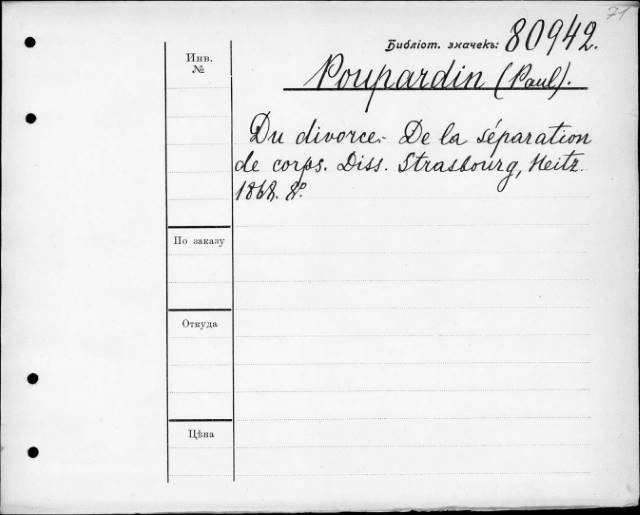 71
Библіот. значекъ: 80942.
Инв.
№
Poupardin (Paul).
Du divorce.- De la séparation
de corps. Diss. Strasbourg, Heitz.
1868. 8º.
По заказу
Откуда
Цѣна